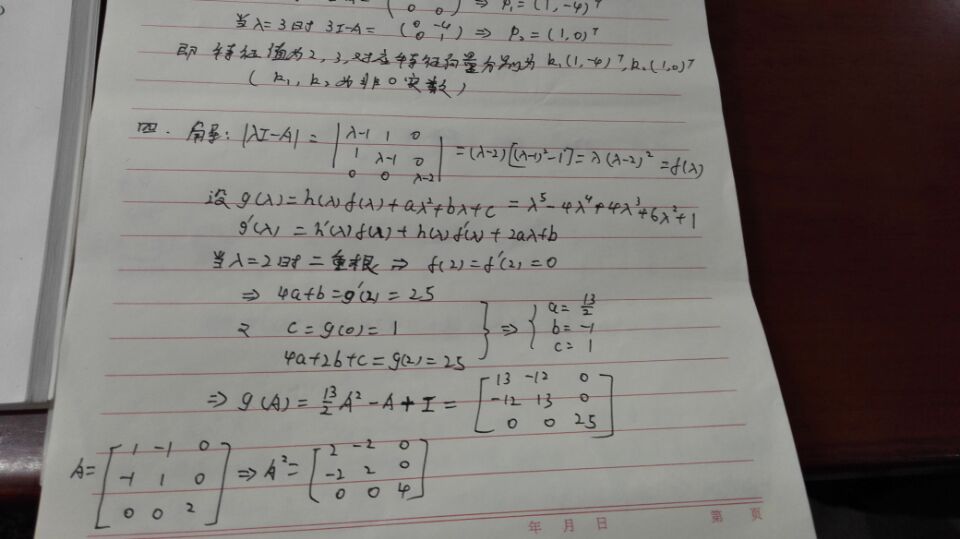 (0 0) ⇒ P₁=(1,-4)ᵀ
当λ=3时 3I-A=(0 -4; 0 1) ⇒ P₂=(1,0)ᵀ
即 特征值为2,3,对应特征向量分别为 k₁(1,-4)ᵀ,k₂(1,0)ᵀ
(k₁, k₂为非0实数)
四. |λI-A| = |λ-1 1 0; 1 λ-1 0; 0 0 λ-2| =(λ-2)[(λ-1)²-1]=λ(λ-2)²=f(λ)
设 g(λ)=h(λ)f(λ)+aλ²+bλ+c =λ⁵-4λ⁴+4λ³+6λ²+1
g'(λ) = h'(λ)f(λ)+h(λ)f'(λ)+2aλ+b
当λ=2时二重根 ⇒ f(2)=f'(2)=0
⇒ 4a+b=g'(2)=25
又 c=g(0)=1
4a+2b+c=g(2)=25
} ⇒ { a=13/2
b=-1
c=1
⇒ g(A)=13/2A²-A+I= [13 -12 0; -12 13 0; 0 0 25]
A=[1 -1 0; -1 1 0; 0 0 2] ⇒ A²=[2 -2 0; -2 2 0; 0 0 4]
年 月 日 第 页